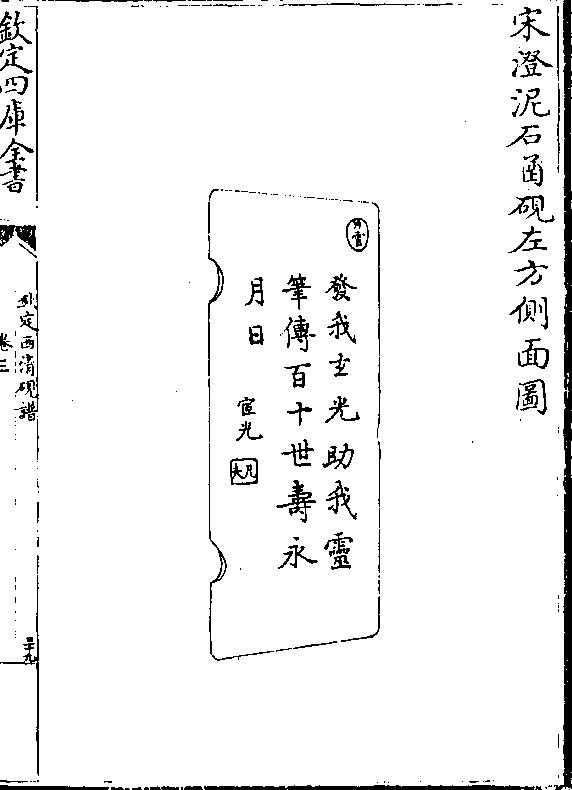 宋澄泥石函硯左方側面圖
發我玄光助我靈
筆傳百十世壽永
月日
宧光
凡夫
欽定四庫全書
欽定西清硯譜
卷三